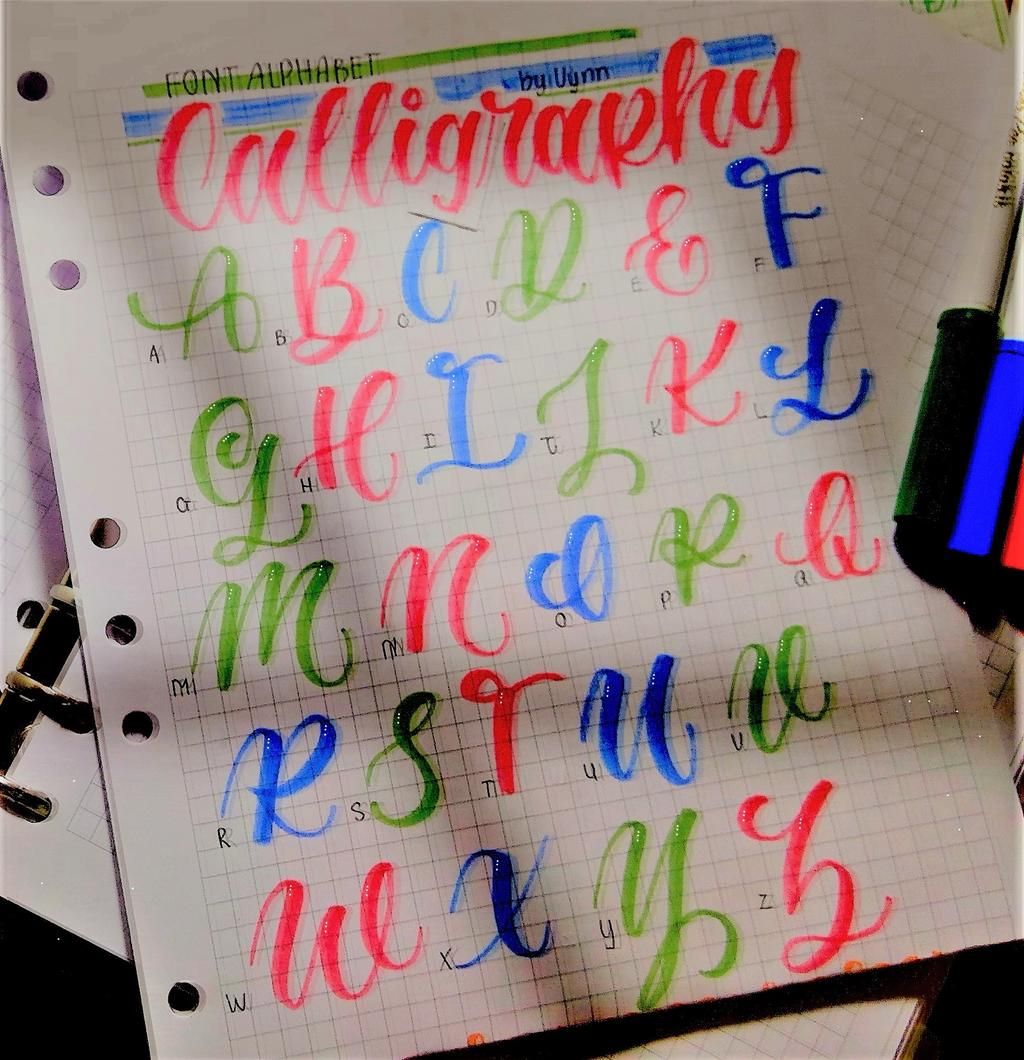 FONT ALPHABET
by Vynn
Calligraphy
A B C D E F
A B C D E F
G H I J K L
G H I J K L
M N O P Q
M N O P Q
R S T U V
R S T U V
W X Y Z
W X Y Z